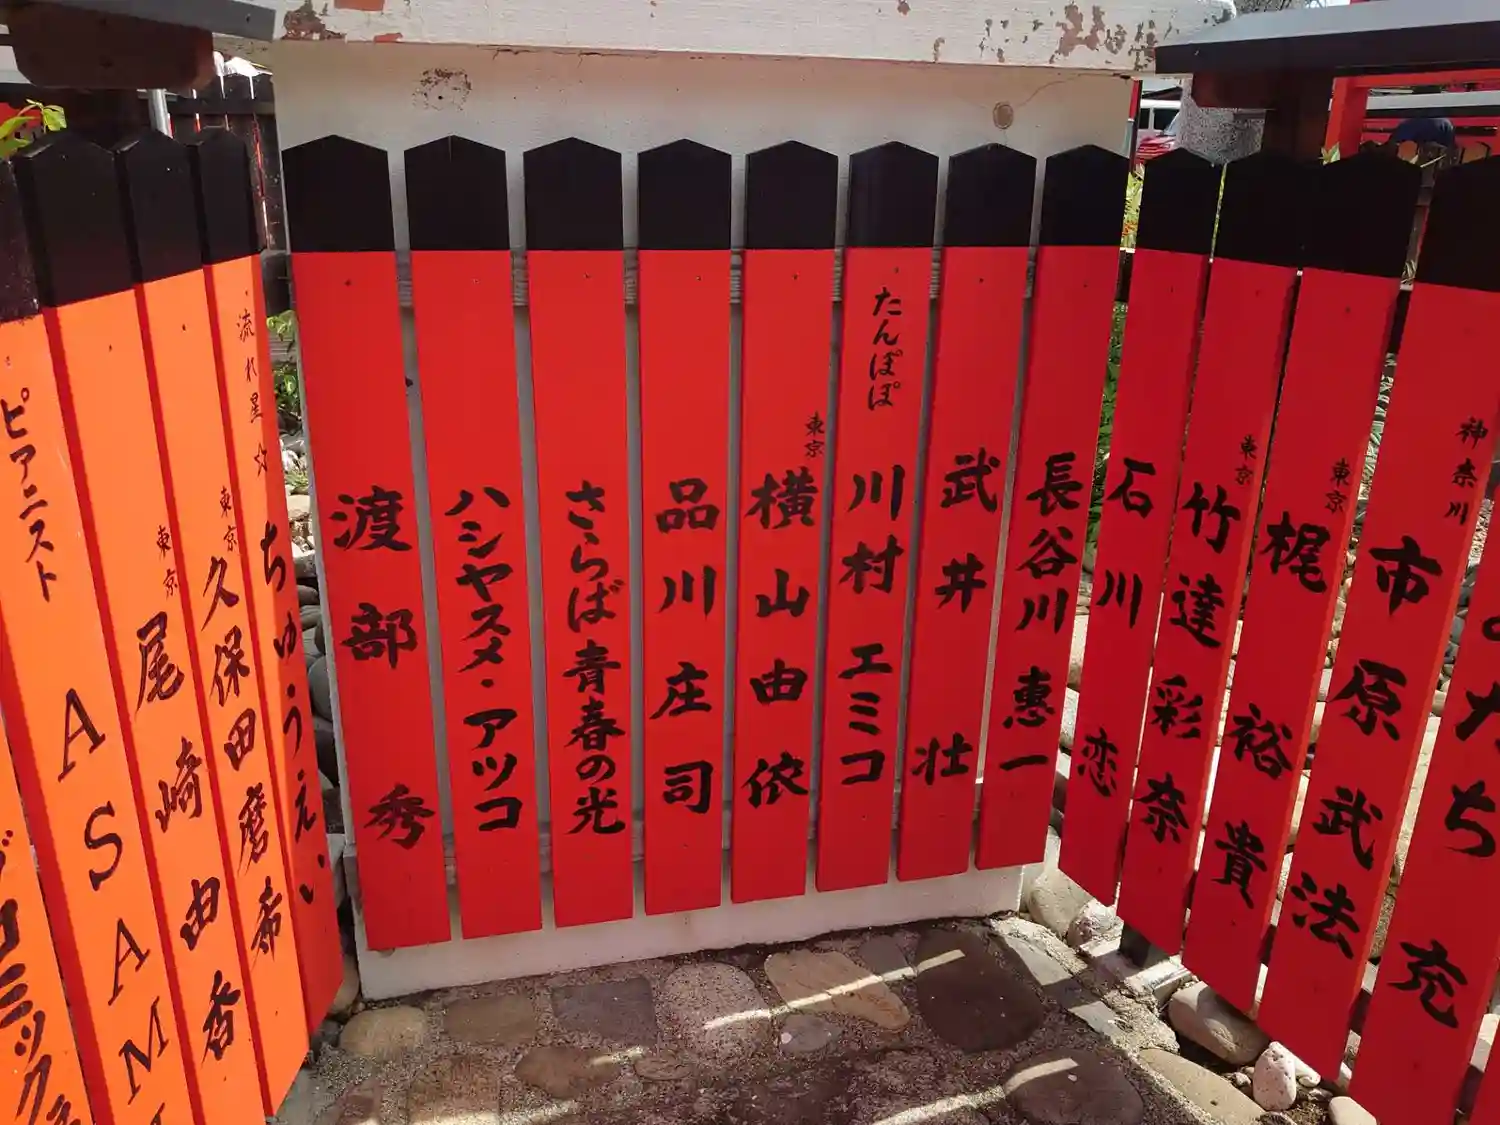 たち充
神奈川
市原武法
東京
梶裕貴
東京
竹達彩奈
石川恋
長谷川惠一
武井壮
たんぽぽ
川村エミコ
東京
横山由依
品川庄司
さらば青春の光
ハシヤスメ・アツコ
渡部秀
流れ星☆
ちゅ・うえい
東京
久保田磨希
東京
尾崎由香
ピアニスト
ASAM
コミック